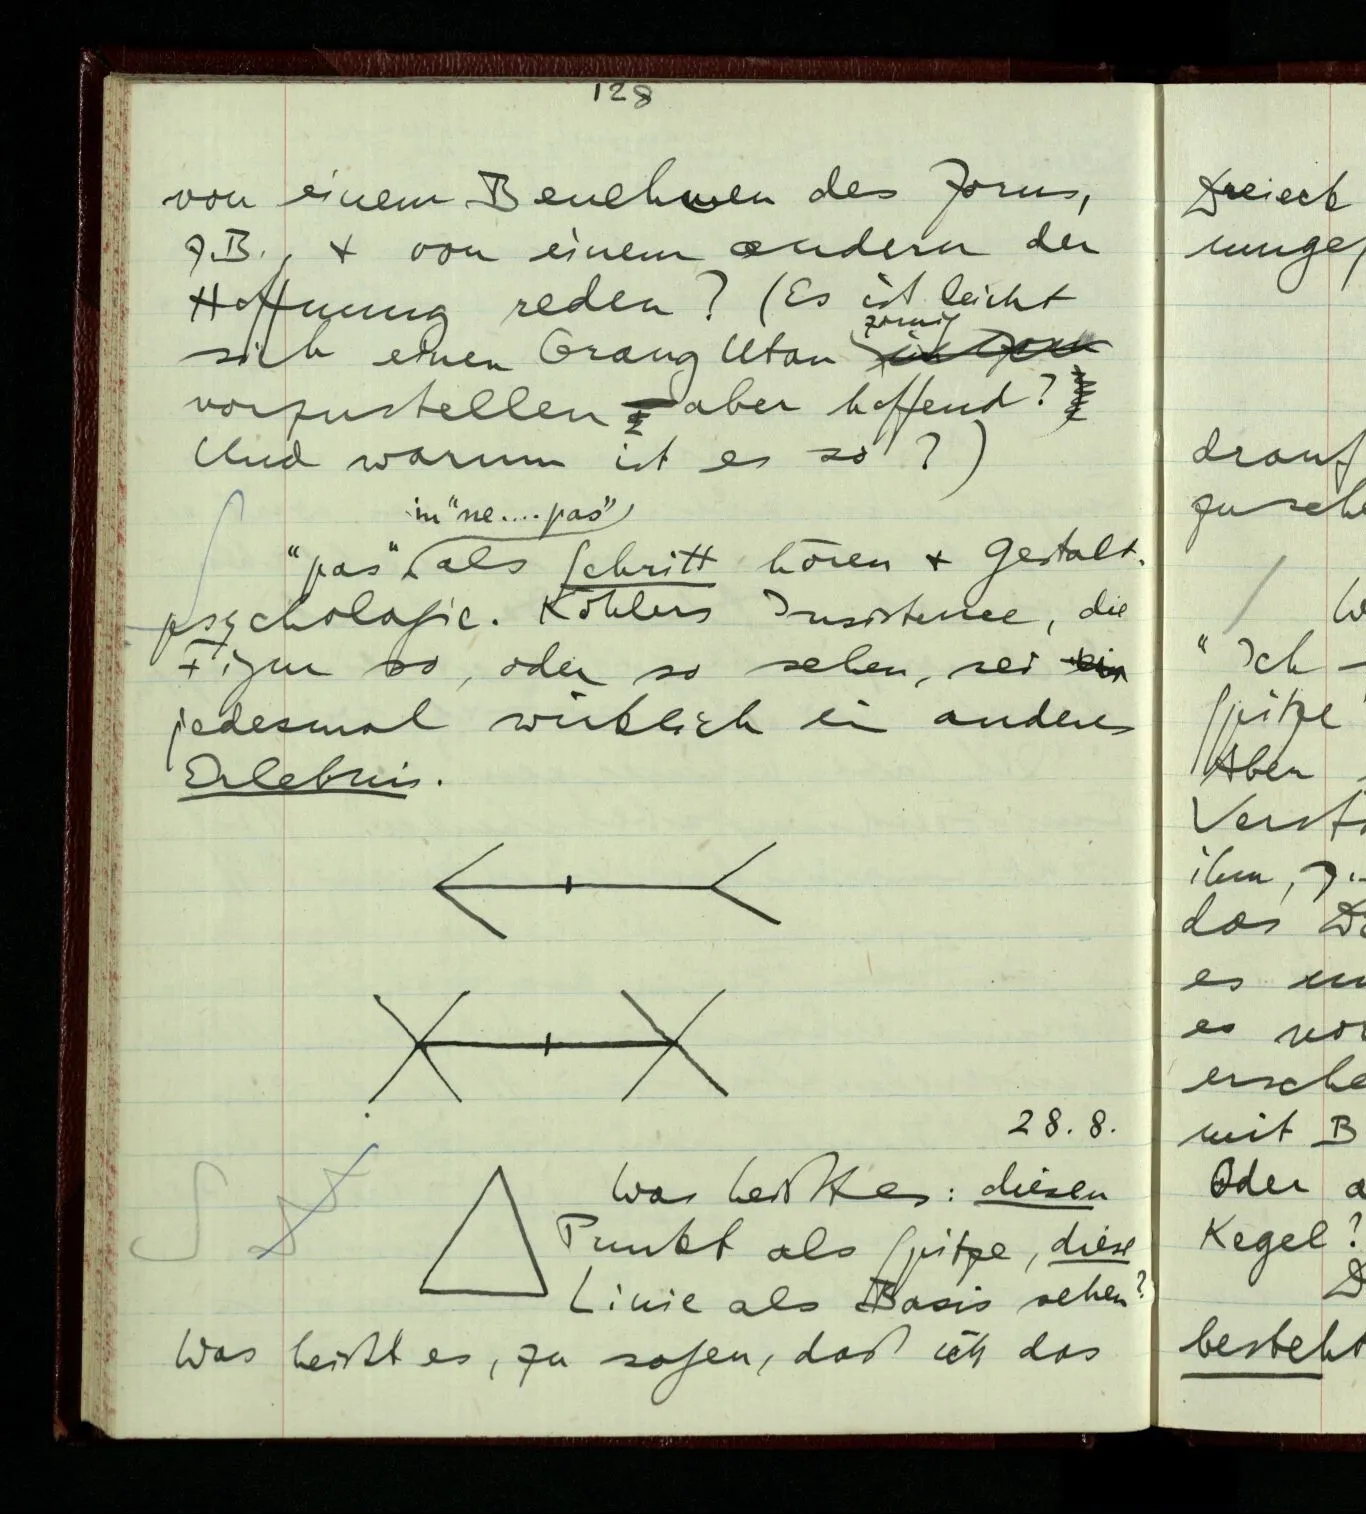 128
von einem Benehmen des Zorns,
z.B., + von einem andern der
Hoffnung reden? (Es ist leicht
zornig
sich einen Orang Utan im Zorn
vorzustellen – aber hoffend?
Und warum ist es so?)
in "ne....pas"
"pas" als Schritt hören + Gestalt-
psychologie. Köhlers Insistence, die
Figur so, oder so sehen, sei ein
jedesmal wirklich ein anderes
Erlebnis.
28.8.
Was heißt es: diesen
Punkt als Spitze, diese
Linie als Basis sehen?
Was heißt es, zu sagen, daß ich das
Dreieck
drauf
"Ich
Spitze
Aber
ihm, z.
das
es
es
mit B
Oder a
Kegel?
D
besteht